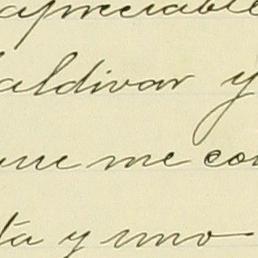 apreciable
aldivar y
me co
ta y uno